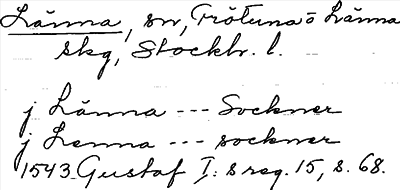 Länna, sn, Frötuna o Länna
skg, Stockh. l.
j Länna --- Sockner
j Lenna --- sockner
1543 Gustaf I: s reg. 15, s. 68.